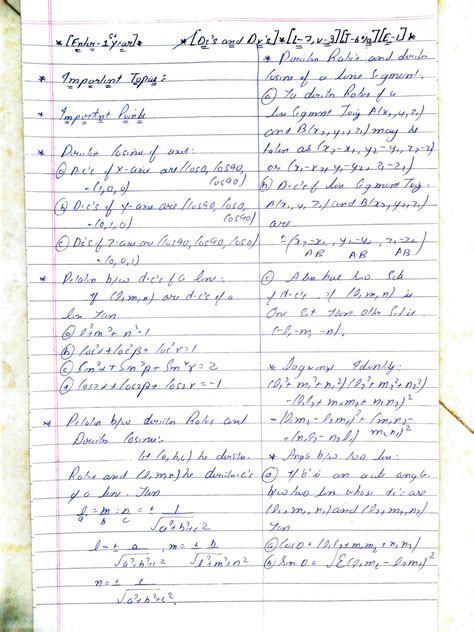 * [Enter-1st year]* *[Dc's and Dr's]*[L-7, v-3][T-6 1/2][E-1]*
* Important Topic:
* Important Points
* Direction Cosine of axes:
(a) D.c's of x-axis are (cos 0, cos 90, cos 90)
= (1,0,0)
(b) D.c's of y-axis are (cos 90, cos 0, cos 90)
= (0,1,0)
(c) D.c's of z-axis are (cos 90, cos 90, cos 0)
= (0,0,1)
* Relation b/w d.c's of a line:
If (l,m,n) are d.c's of a
line Then
(a) l²+m²+n²=1
(b) cos²α+cos²β+cos²γ=1
(c) sin²α+sin²β+sin²γ=2
(d) cos2α+cos2β+cos2γ=-1
* Relation b/w direction Ratios and
Direction Cosine:
Let (a,b,c) be direction
Ratios and (l,m,n) be direction c's
of a line. Then
l/a = m/b = n/c = ± 1/√a²+b²+c²
l = ± a/√a²+b²+c², m = ± b/
n = ± /√a²+b²+c²
* Direction Ratios and direction
Cosine of a line Segment.
(a) The direction Ratios of a
line Segment Joing A(x₁,y₁,z₁)
and B(x₂,y₂,z₂) may be
taken as (x₂-x₁, y₂-y₁, z₂-z₁)
or (x₁-x₂, y₁-y₂, z₁-z₂)
(b) D.c's of line Segment Joing
A(x₁,y₁,z₁) and B(x₂,y₂,z₂)
are
±(x₂-x₁/AB, y₂-y₁/AB, z₂-z₁/AB)
(c) A line has two Sets
of d.c's if (l,m,n) is
One Set Then Other Set is
(-l,-m,-n).
* Lagrange's Identity:
(l₁²+m₁²+n₁²)(l₂²+m₂²+n₂²)
-(l₁l₂+m₁m₂+n₁n₂)²
=(l₁m₂-l₂m₁)²+(m₁n₂-m₂n₁)²
+(n₁l₂-n₂l₁)²
* Angle b/w two line
(a) If θ is an angle
b/w two line whose d.c's are
(l₁,m₁,n₁) and (l₂,m₂,n₂)
Then
(a) cosθ = (l₁l₂+m₁m₂+n₁n₂)
(b) Sinθ = √Σ(l₁m₂-l₂m₁)²